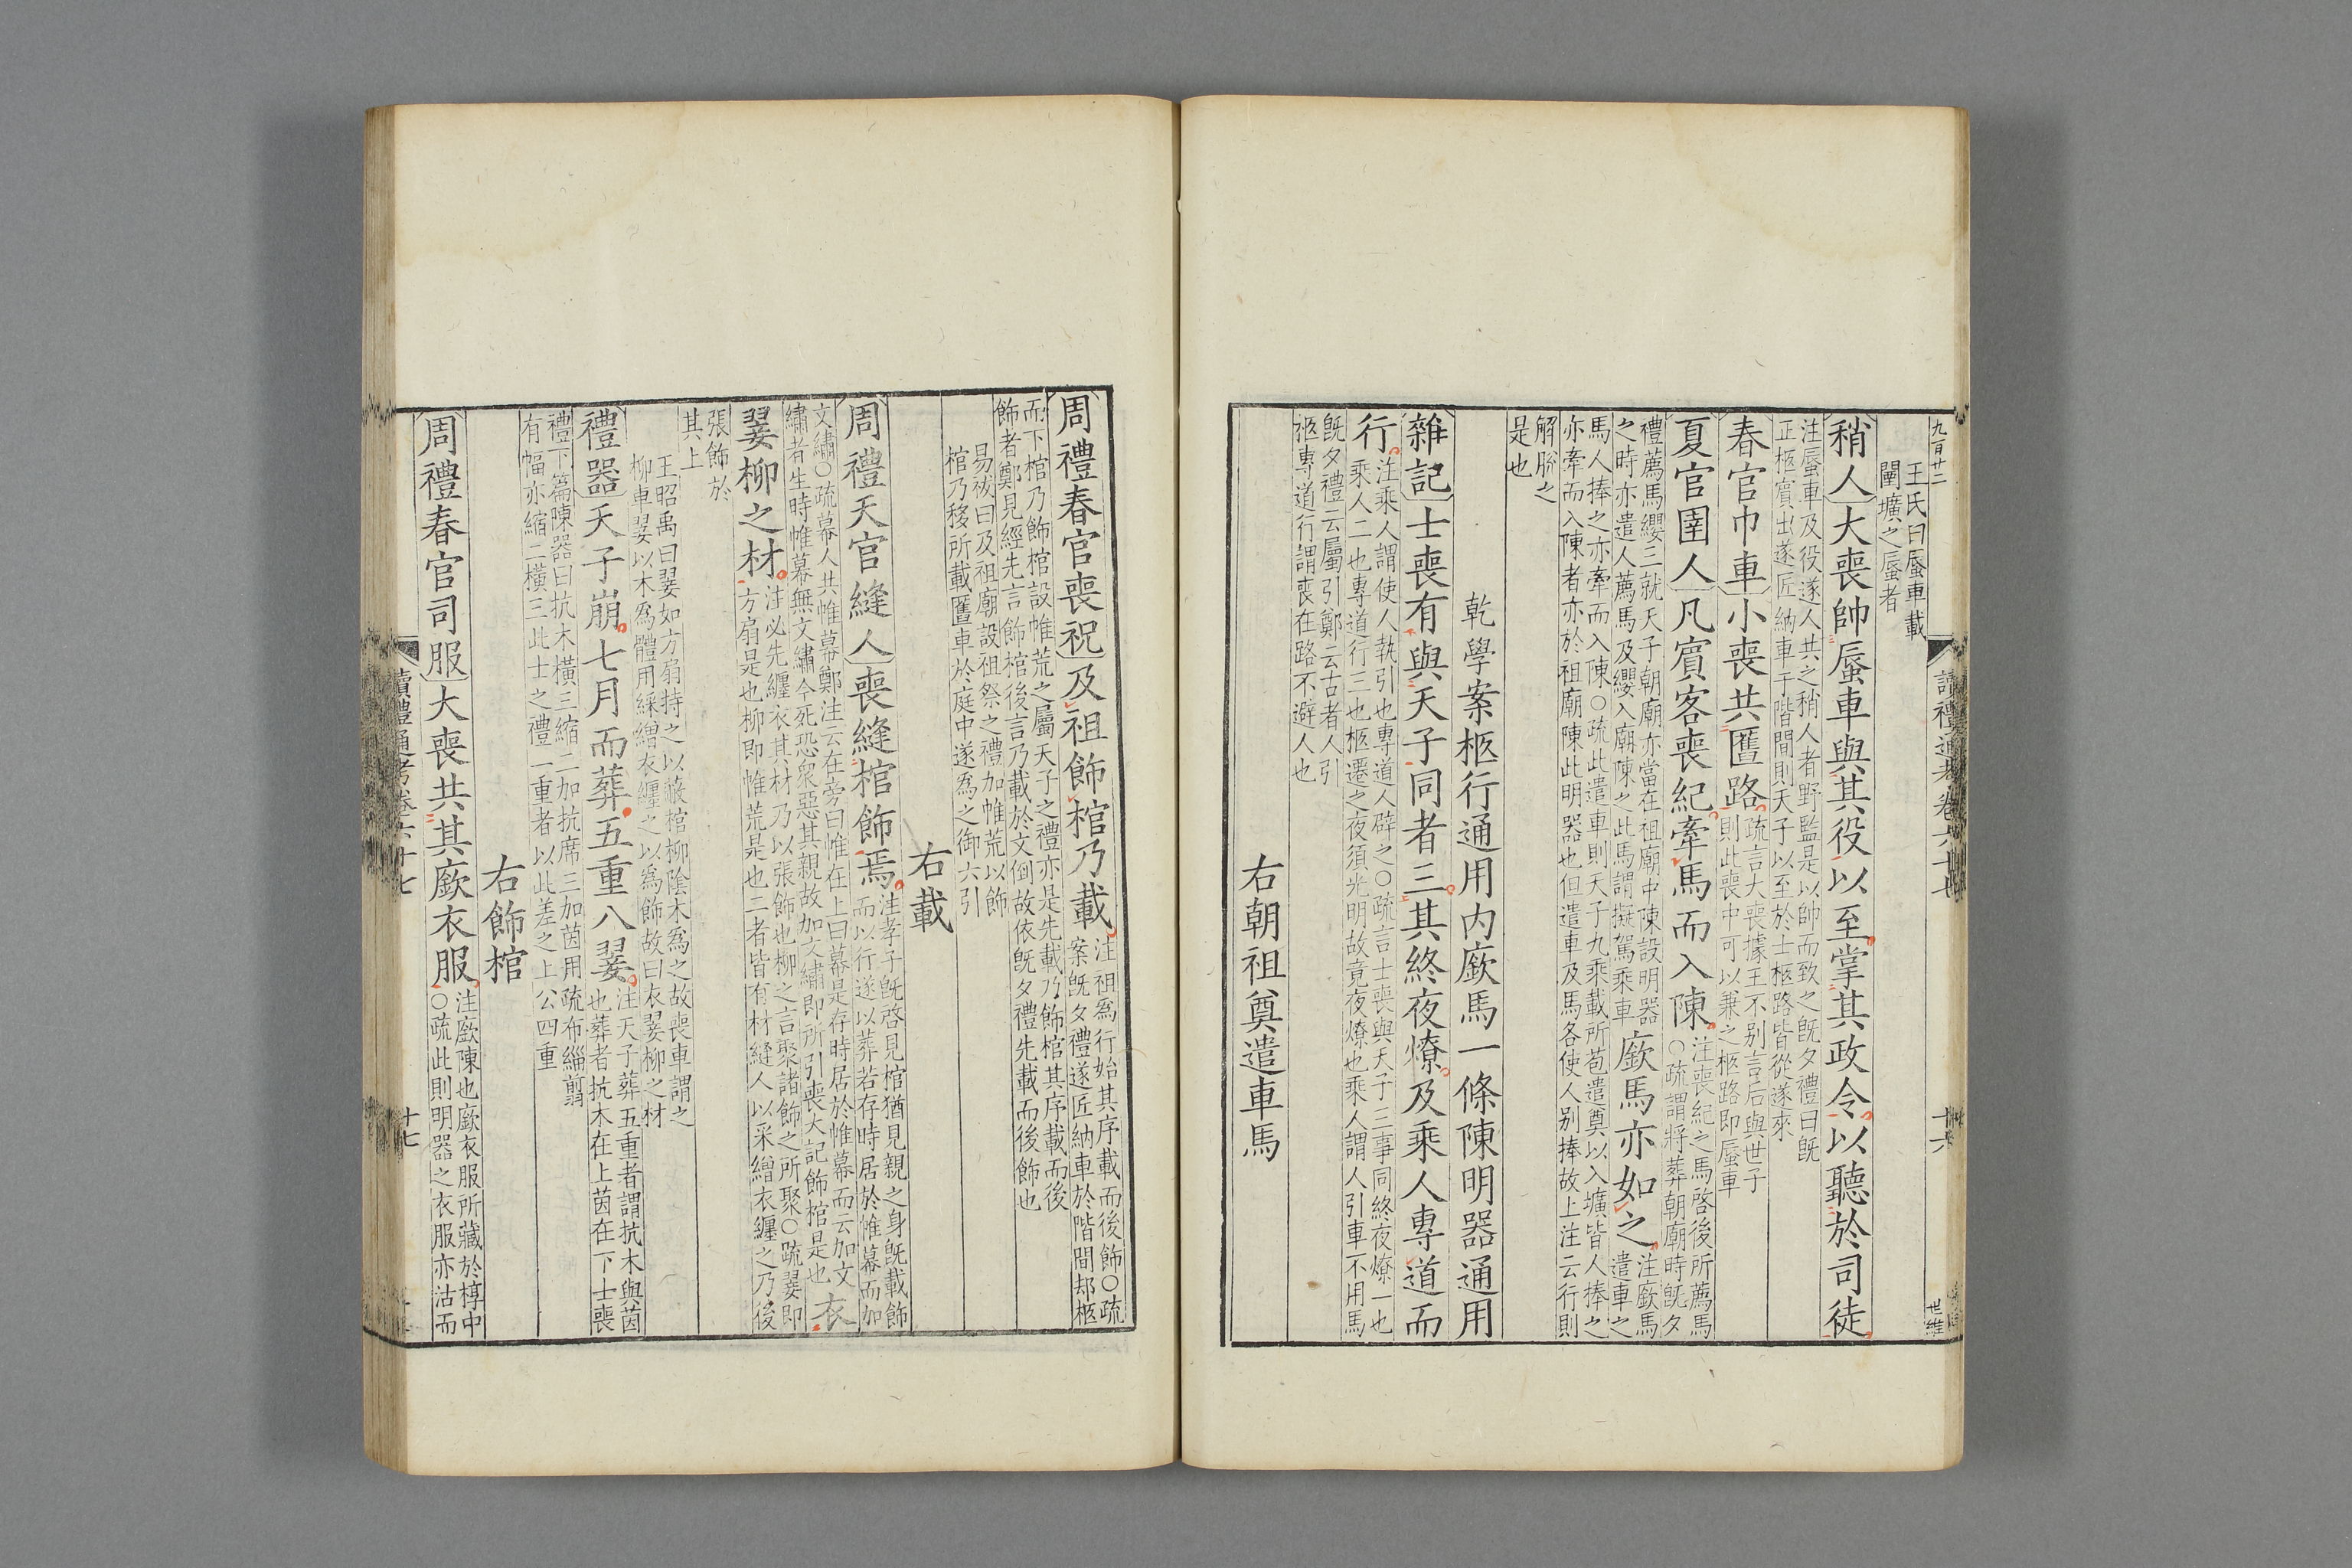 九百廿二
王氏曰蜃車載
闉壙之蜃者
稍人大喪帥蜃車與其役以至掌其政令以聽於司徒
注蜃車及役遂人共之稍人者野監是以帥而致之旣夕禮曰旣
正柩賓出遂匠納車于階間則天子以至於士柩路皆從遂來
春官巾車小喪共匶路
疏言大喪據王不别言后與世子
則此喪中可以兼之柩路即蜃車
夏官圉人凡賓客喪紀牽馬而入陳
注喪紀之馬啓後所薦馬
○疏謂將葬朝廟時旣夕
禮薦馬纓三就天子朝廟亦當在祖廟中陳設明器
之時亦遣人薦馬及纓入廟陳之此馬謂擬駕乘車
廞馬亦如之
注廞馬
遣車之
馬人捧之亦牽而入陳○疏此遣車則天子九乘載所苞遣奠以入壙皆人捧之
亦牽而入陳者亦於祖廟陳此明器也但遣車及馬各使人别捧故上注云行則
解脫之
是也
乾學案柩行通用内廞馬一條陳明器通用
雜記士喪有與天子同者三其終夜燎及乘人專道而
行
注乘人謂使人執引也專道人辟之○疏言士喪與天子三事同終夜燎一也
乘人二也專道行三也柩遷之夜須光明故竟夜燎也乘人謂人引車不用馬
旣夕禮云屬引鄭云古者人引
柩專道行謂喪在路不避人也
右朝祖奠遣車馬
讀禮通考卷六十七
十六
世維
周禮春官喪祝及祖飾棺乃載
注祖爲行始其序載而後飾○疏
案旣夕禮遂匠納車於階間却柩
而下棺乃飾棺設帷荒之屬天子之禮亦是先載乃飾棺其序載而後
飾者鄭見經先言飾棺後言乃載於文倒故依旣夕禮先載而後飾也
易祓曰及祖廟設祖祭之禮加帷荒以飾
棺乃移所載匶車於庭中遂爲之御六引
右載
周禮天官縫人喪縫棺飾焉
注孝子旣啓見棺猶見親之身旣載飾
而以行遂以葬若存時居於帷幕而加
文繡○疏幕人共帷幕鄭注云在旁曰帷在上曰幕是存時居於帷幕而云加文
繡者生時帷幕無文繡今死恐衆惡其親故加文繡即所引喪大記飾棺是也
衣
翣柳之材
注必先纏衣其材乃以張飾也柳之言聚諸飾之所聚○疏翣即
方扇是也柳即帷荒是也二者皆有材縫人以采繒衣纏之乃後
張飾於
其上
王昭禹曰翣如方扇持之以蔽棺柳陰木爲之故喪車謂之
柳車翣以木爲體用綵繒衣纏之以爲飾故曰衣翣柳之材
禮器天子崩七月而葬五重八翣
注天子葬五重者謂抗木與茵
也葬者抗木在上茵在下士喪
禮下篇陳器曰抗木橫三縮二加抗席三加茵用疏布緇翦
有幅亦縮二橫三此士之禮一重者以此差之上公四重
右飾棺
周禮春官司服大喪共其廞衣服
注廞陳也廞衣服所藏於椁中
○疏此則明器之衣服亦沽而
讀禮通考卷六十七
十七